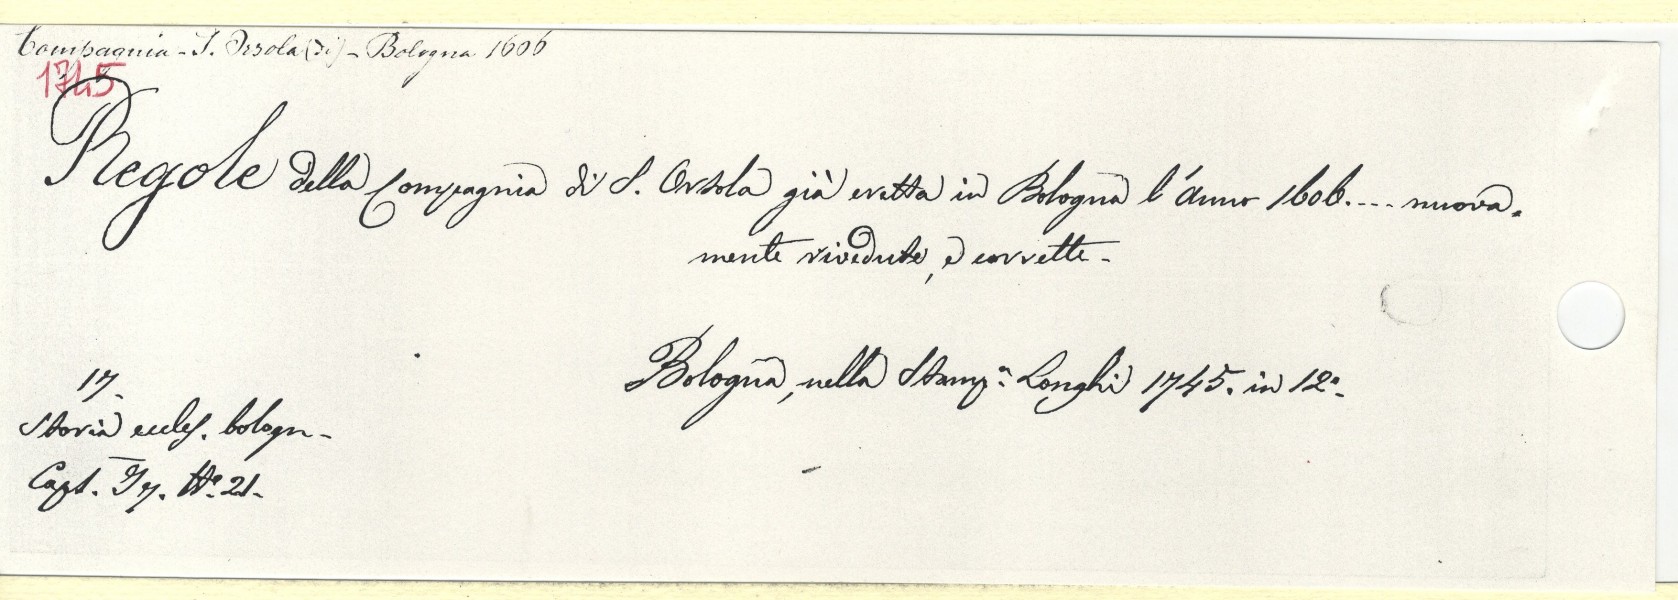 Compagnia - S. Orsola (di) - Bologna 1606
1745
Regole della Compagnia di S. Orsola già eretta in Bologna l'anno 1606.... nuova-
mente rivedute, e corrette.
Bologna, nella Stamp.a Longhi 1745. in 12.o
17.
Storia eccles. bologn.
Cart. I 7. N.o 21.